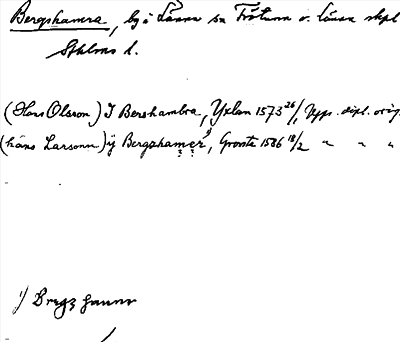 Bergshamra, by i Länna sn Frötuna o. länna skpl
Sthlms l.
(Hans Olsson) I Bershambra, Yxlan 1573 26/, Upps. dipl. orig.
(häns Larsonn) ÿ Bergzhamer¹⁾, 1586 18/2 " " "
1) Bregz hamr